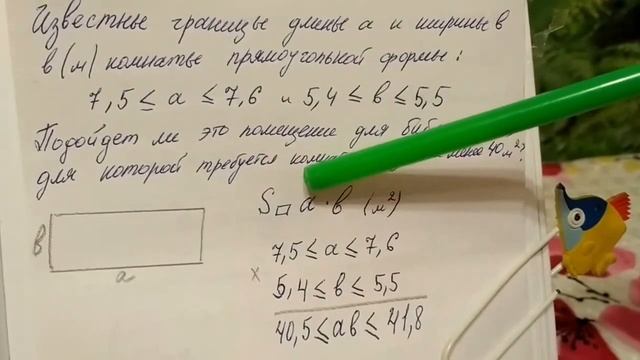 Известны границы длины а и ширины в
в (м) комнаты прямоугольной формы:
7,5 ≤ а ≤ 7,6 и 5,4 ≤ в ≤ 5,5
Подойдет ли это помещение для
для которой требуется 40 м²?
S▭ а·в (м²)
7,5 ≤ а ≤ 7,6
× 5,4 ≤ в ≤ 5,5
40,5 ≤ ав ≤ 41,8
в
а